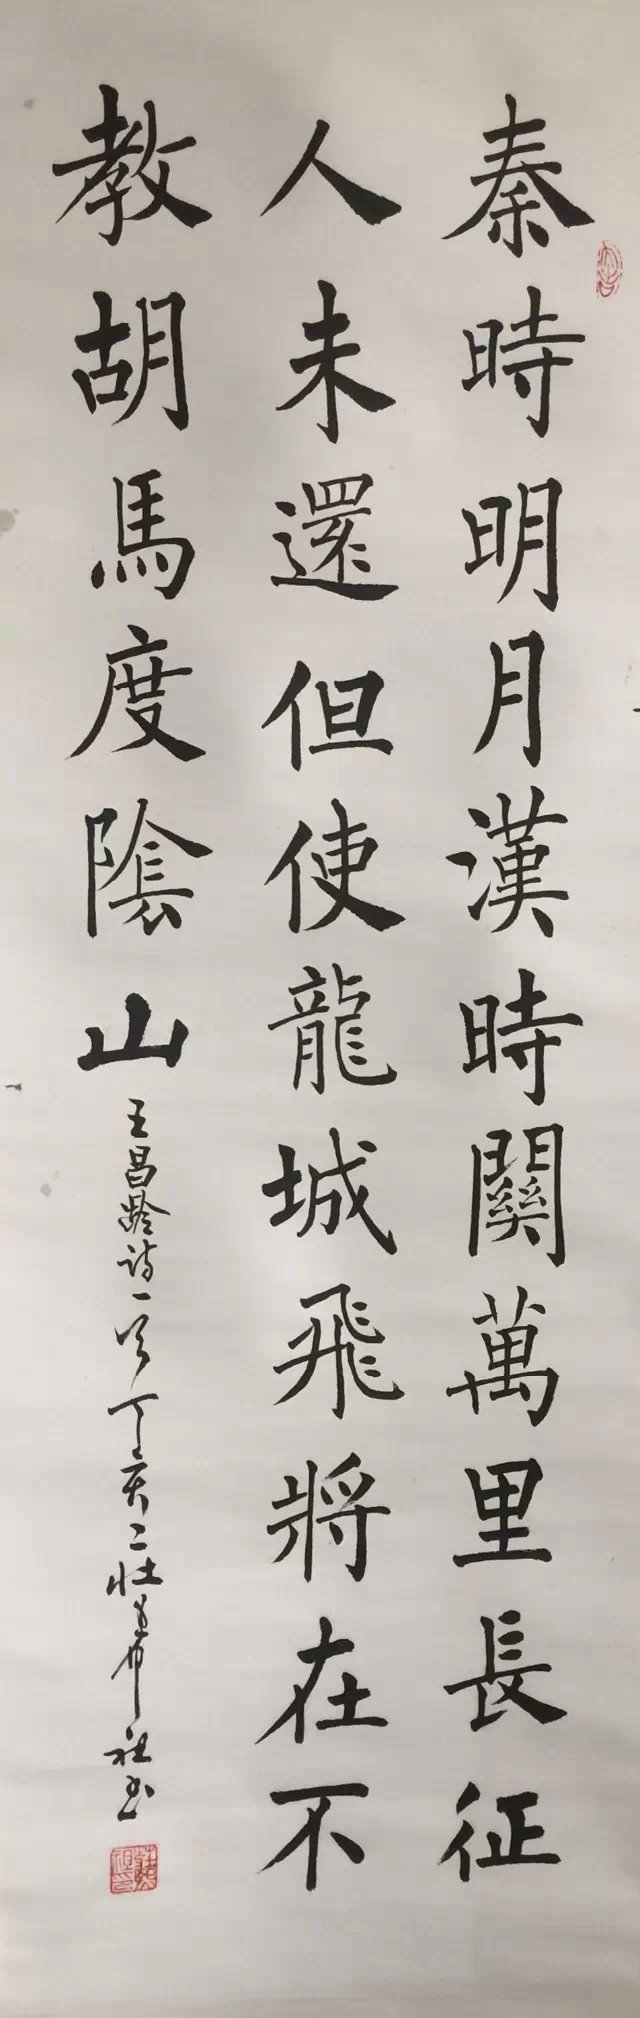 秦時明月漢時關萬里長征
人未還但使龍城飛將在不
教胡馬度陰山
王昌齡詩一首丁亥二